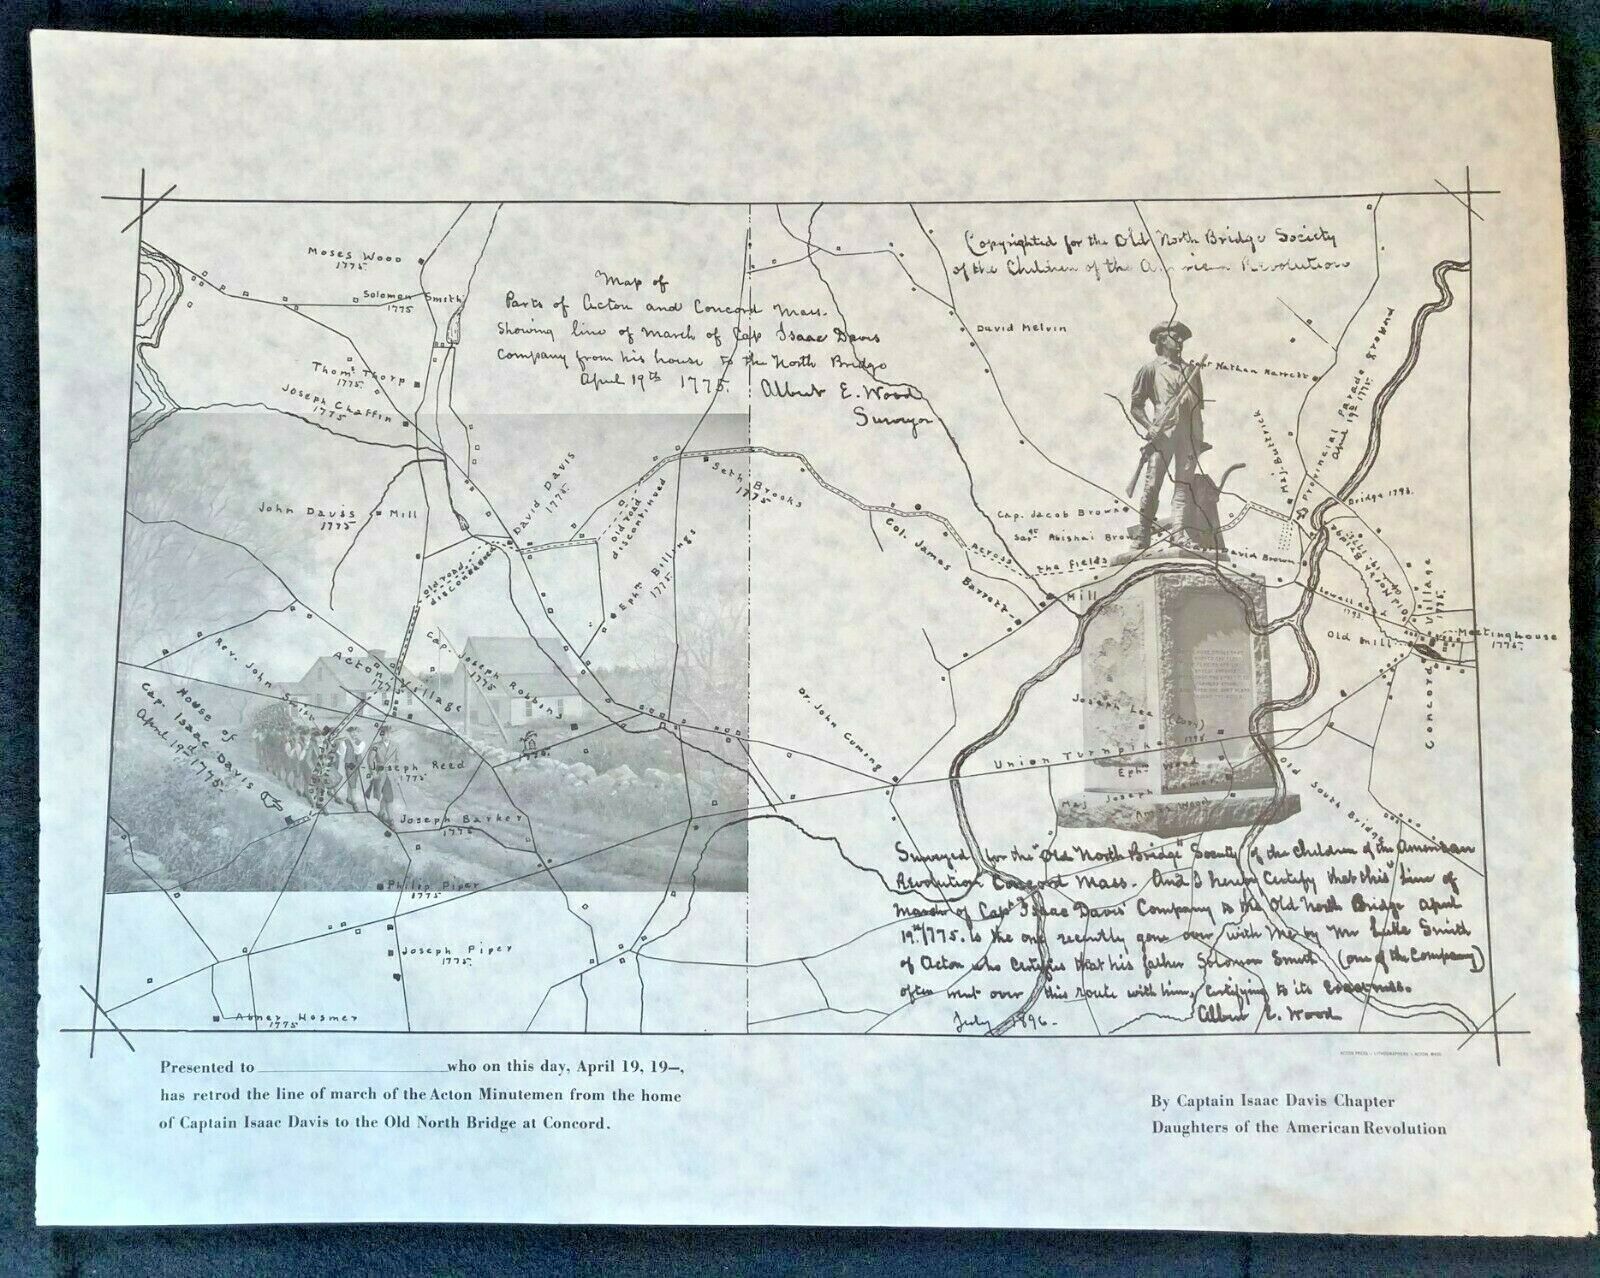 Copyrighted for the Old North Bridge Society
of the Children of the American Revolution
Map of
Parts of Acton and Concord Mass.
Showing line of march of Cap Isaac Davis
Company from his house to the North Bridge
April 19th 1775.
Albert E. Wood
Surveyor
Moses Wood
1775
Solomon Smith
1775
Thoms Thorp
1775
Joseph Chaffin
1775
John Davis
1775
Mill
David Davis
1775
Old road
discontinued
Old road
discontinued
Seth Brooks
1775
Ephm Billings
1775
Rev. John Swift
Acton Village
1775
Cap. Joseph Robbins
1775
House of
Cap. Isaac Davis
April 19th 1775
Joseph Reed
1775
Joseph Barker
1775
Philip Piper
1775
Joseph Piper
1775
Abner Hosmer
1775
David Melvin
Capt Nathan Barrett
Provincial Parade ground
April 19th 1775
Maj. Buttrick
Bridge 1793.
Cap. Jacob Brown
Abishai Brown
David Brown
Col. James Barrett
Across
the fields
Mill
Old North Bridge
Lowell Road
1775
Village
1775
Old Mill
Meetinghouse
1775
Concord
Dr. John Cuming
Joseph Lee
Union Turnpike
Ephm Wood
Maj. Joseph Hosmer
Wood
Old South Bridge
Surveyed for the "Old North Bridge" Society of the Children of the American
Revolution Concord Mass. And I hereby Certify that this line of
march of Capt Isaac Davis' Company to the Old North Bridge April
19th/1775. is the one recently gone over with me by Mr Luke Smith
of Acton who Certifies that his father Solomon Smith (one of the Company)
often went over this route with him, certifying to its exactness.
July 1896.
Albert E. Wood
ACTON PRESS - LITHOGRAPHERS - ACTON MASS
Presented to ____ who on this day, April 19, 19—,
has retrod the line of march of the Acton Minutemen from the home
of Captain Isaac Davis to the Old North Bridge at Concord.
By Captain Isaac Davis Chapter
Daughters of the American Revolution